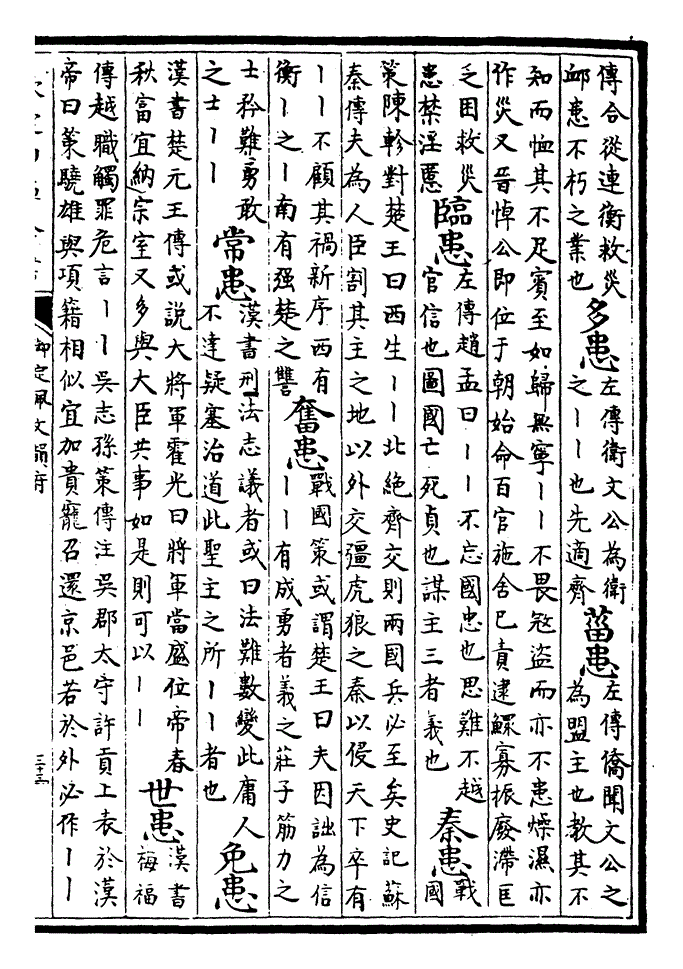 傳合從連衡救災
䘏患不朽之業也
多患
左傳衛文公為衛
之丨丨也先適齊
菑患
左傳僑聞文公之
為盟主也教其不
知而恤其不足賓至如歸無寧丨丨不畏寇盜而亦不患燥濕亦
作災又晉悼公即位于朝始命百官施舍已責逮鰥寡振廢滯匡
乏困救災
患禁淫慝
臨患
左傳趙孟曰丨丨不忘國忠也思難不越
官信也圖國亡死貞也謀主三者義也
秦患
戰
國
策陳軫對楚王曰西生丨丨北絕齊交則兩國兵必至矣史記蘇
秦傳夫為人臣割其主之地以外交彊虎狼之秦以侵天下卒有
丨丨不顧其禍新序西有
衡丨之丨南有强楚之讐
奮患
戰國策或謂楚王曰夫因詘為信
丨丨有成勇者義之莊子筋力之
士矜難勇敢
之士丨丨
常患
漢書刑法志議者或曰法難數變此庸人
不達疑塞治道此聖主之所丨丨者也
免患
漢書楚元王傳或說大將軍霍光曰將軍當盛位帝春
秋富宜納宗室又多與大臣共事如是則可以丨丨
世患
漢書
梅福
傳越職觸罪危言丨丨吳志孫策傳注吳郡太守許貢上表於漢
帝曰策驍雄與項籍相似宜加貴寵召還京邑若於外必作丨丨
御定佩文韻府
三十三